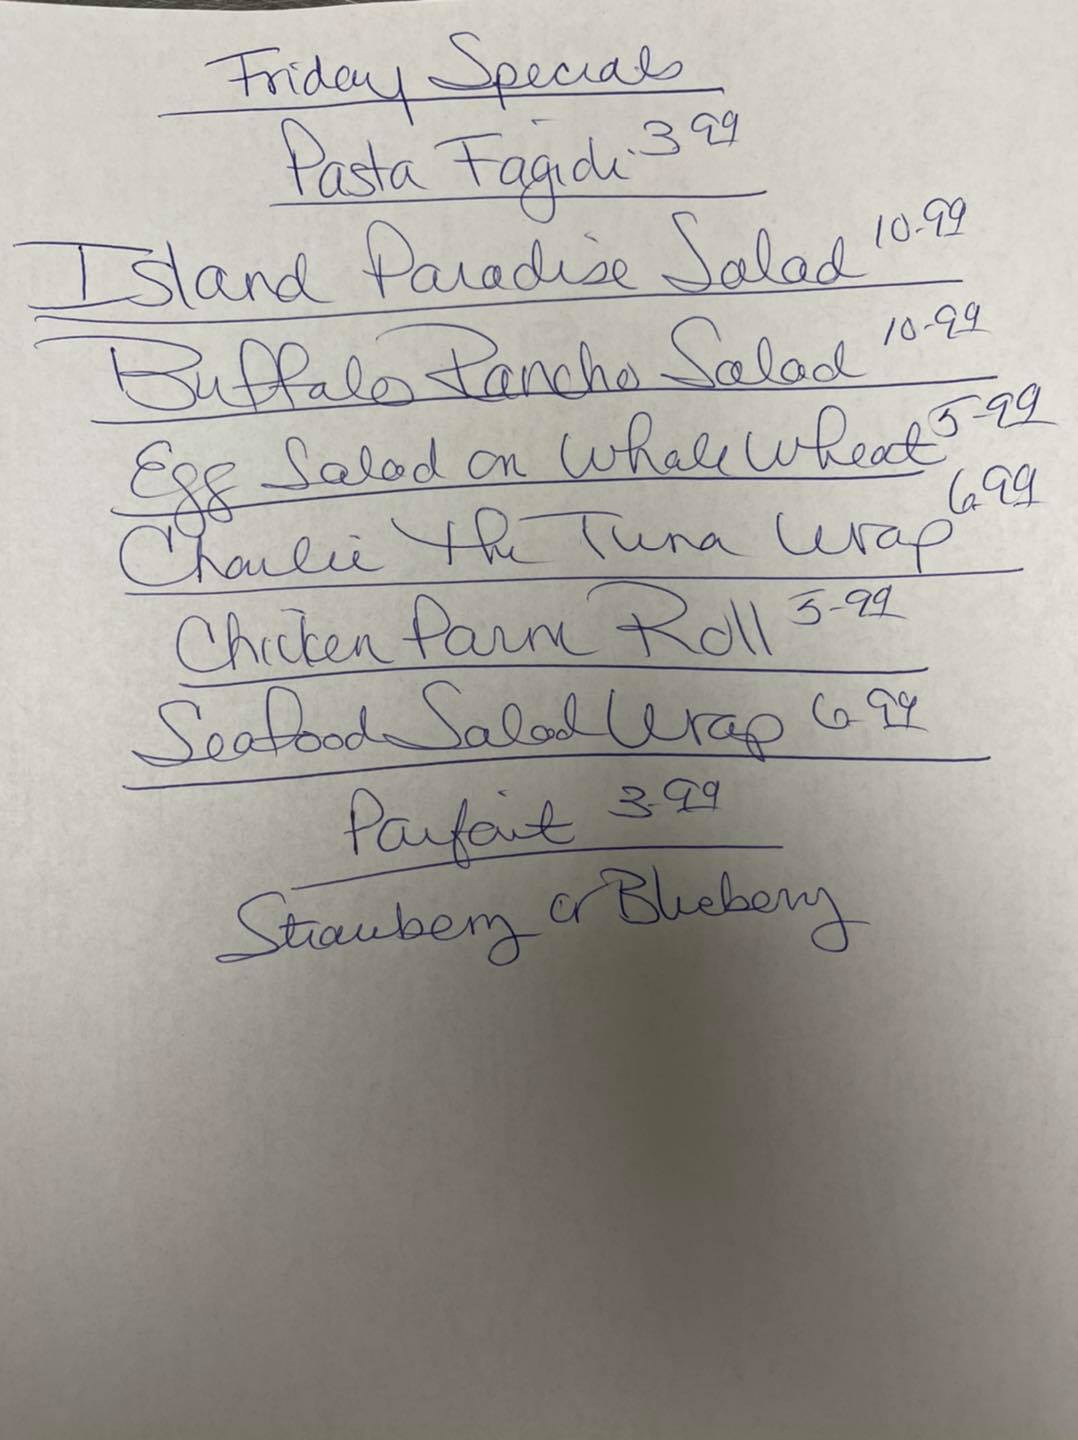 Friday Specials
Pasta Fagidi 3.99
Island Paradise Salad 10-99
Buffalo Rancho Salad 10-99
Egg Salad on Whole Wheat 5-99
Charlie the Tuna Wrap 6.99
Chicken Parm Roll 5-99
Seafood Salad Wrap 6.99
Parfait 3.99
Strawberry or Blueberry